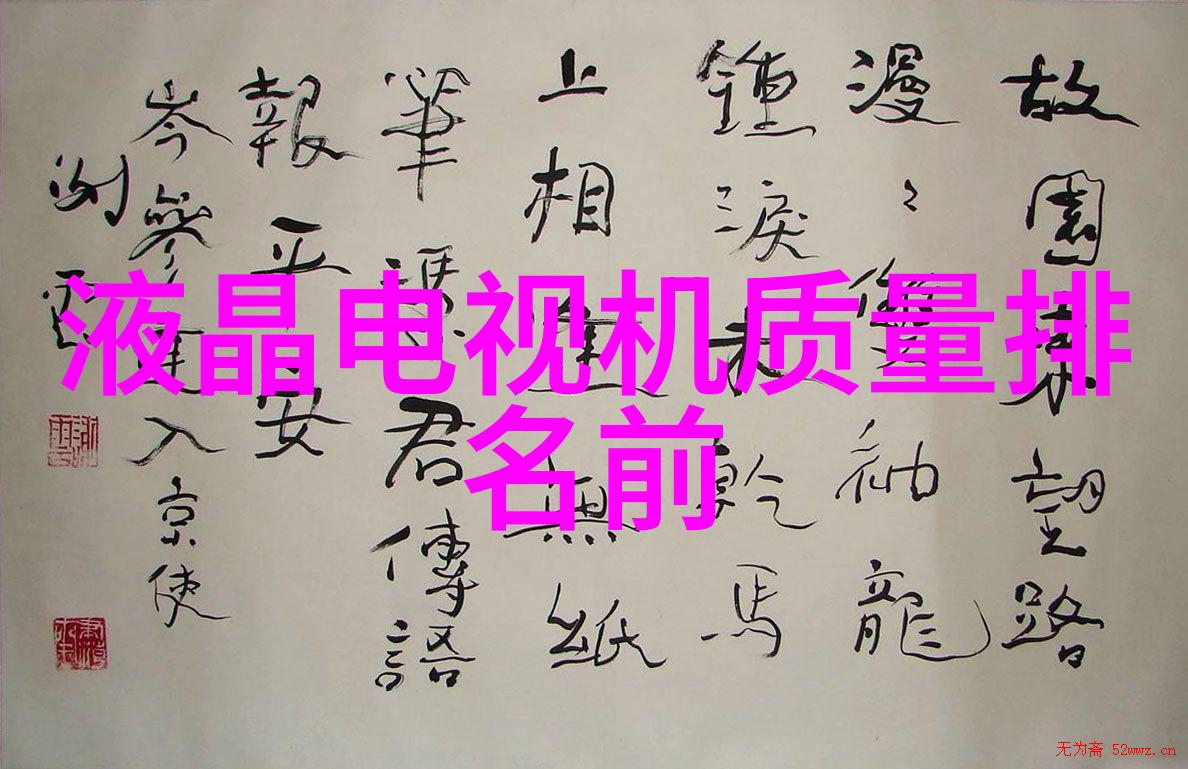 液晶电视机质量排
名前
故園東望路
漫々雙袖龍
鍾淚未乾馬
上相逢無紙
筆憑君傳語
報平安
岑參逢入京使
无为斋 52wwz.cn